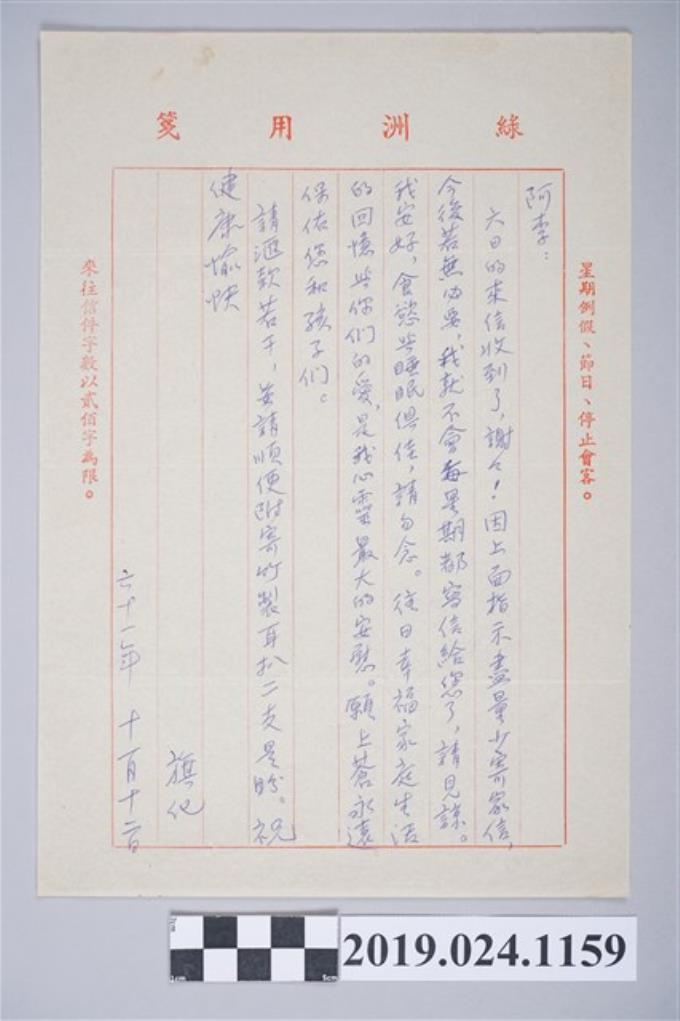 綠洲用箋
星期例假、節日、停止會客。
阿李：
六日的來信收到了，謝々！因上面指示盡量少寄家信，
今後若無必要，我就不會每星期都寫信給您了，請見諒。
我安好，食慾與睡眠俱佳，請勿念。往日幸福家庭生活
的回憶與你們的愛，是我心靈最大的安慰。願上蒼永遠
保佑您和孩子們。
請滙款若干，並請順便附寄竹製耳扒二支是盼。祝
健康愉快
旗化
六十一年 十一月十二日
來往信件字數以貳佰字為限。
2019.024.1159
1cm
5cm